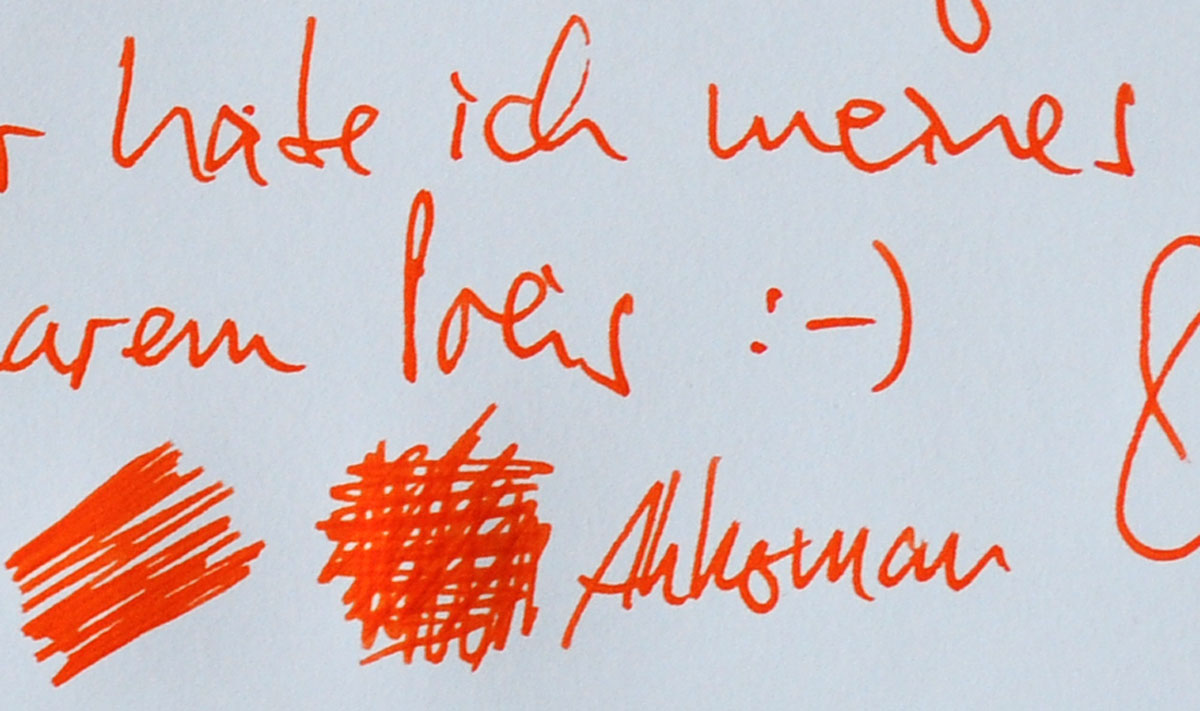 hätte ich meines
arem Preis :-)
Akkerman